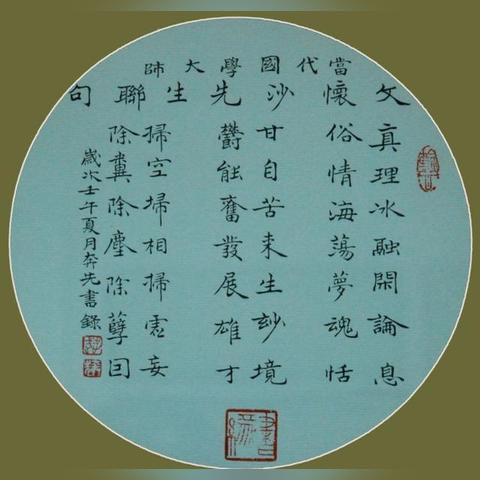 當代國學大師
文懷沙先生聯句
真理冰融閑論息
俗情海蕩夢魂恬
甘自苦来生玅境
鬱能奮發展雄才
掃空埽相掃虛妄
除糞除塵除孽囙
歲次壬午夏月奔先書錄